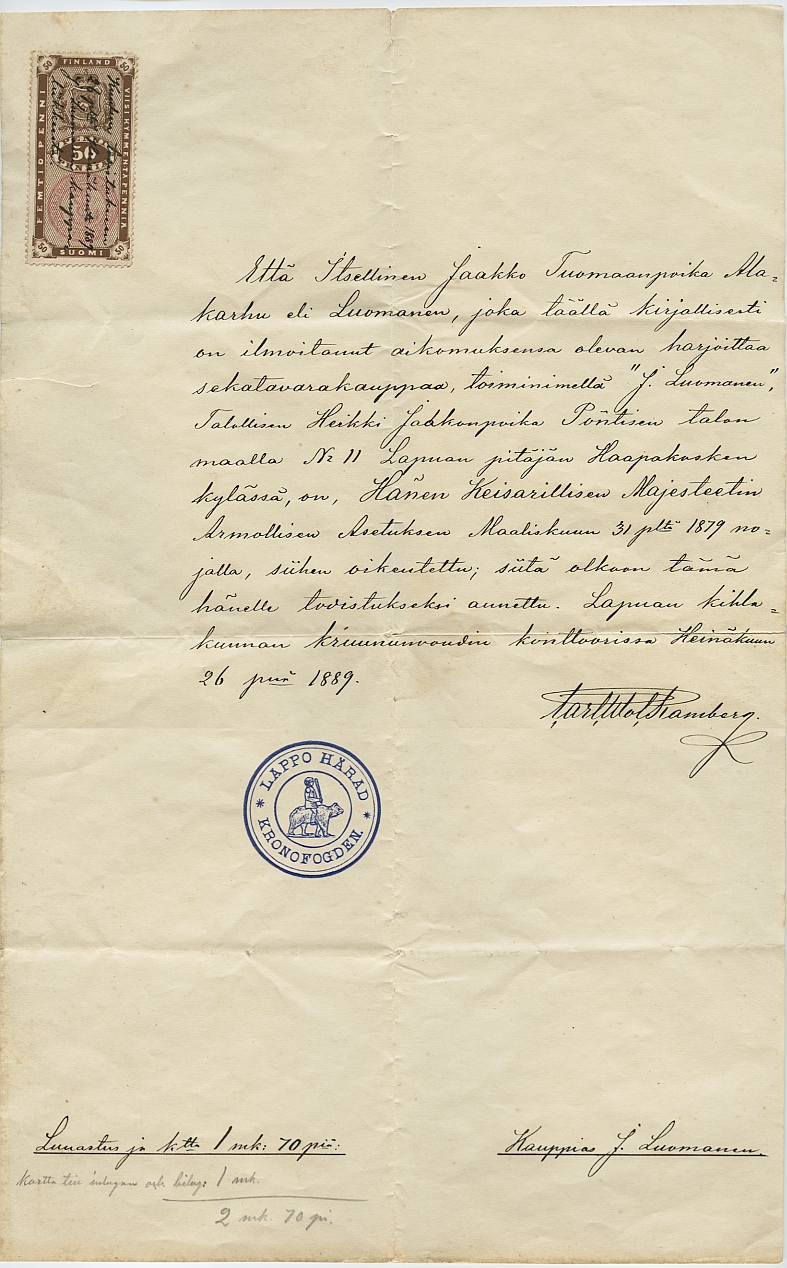 50 FINLAND 50
FEMTIO PENNI
VIISIKYMMENTÄ PENNIÄ
50
50 SUOMI 50
Että Itsellinen Jaakko Tuomaanpoika Ala-
karhu eli Luomanen, joka täällä kirjallisesti
on ilmoitanut aikomuksensa olevan harjoittaa
sekatavarakauppaa, toiminimellä "J. Luomanen",
Talollisen Heikki Jaakonpoika Pöntisen talon
maalla № 11 Lapuan pitäjän Haapakosken
kylässä, on, Hänen Keisarillisen Majesteetin
Armollisen Asetuksen Maaliskuun 31 pltä 1879 no-
jalla, siihen oikeutettu; siitä olkoon tämä
hänelle todistukseksi annettu. Lapuan kihla-
kunnan kruununvoudin konttoorissa Heinäkuun
26 pnä 1889.
Ramberg.
LAPPO HÄRAD
* *
KRONOFOGDEN.
Lunastus ja ktta 1 mk: 70 piä:
Kauppias J. Luomanen.
Kartta till inlagan och bilag: 1 mk.
2 mk. 70 pi.